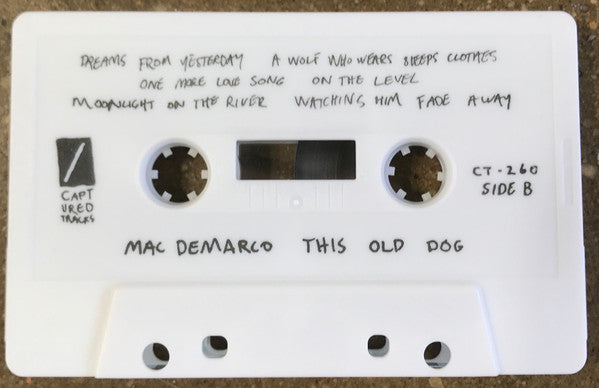 DREAMS FROM YESTERDAY A WOLF WHO WEARS SHEEPS CLOTHES
ONE MORE LOVE SONG ON THE LEVEL
MOONLIGHT ON THE RIVER WATCHING HIM FADE AWAY
CAPT
URED
TRACKS
CT-260
SIDE B
MAC DEMARCO THIS OLD DOG